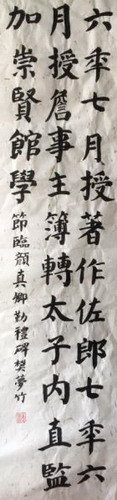 六年七月授著作佐郎七年六
月授詹事主簿轉太子內直監
加崇賢館學
節臨顏真卿勤禮碑樊夢竹